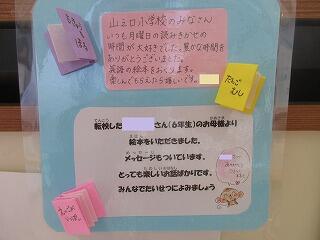 山三口小学校のみなさん
いつも月曜日の読みきかせの
時間が大好きでした。豊かな時間を
ありがとうございました。
英語の絵本をおくります。
楽しんでもらえたら嬉しいです。
だんご
むし
てんこう
転校した さん(6年生)のお母様より
えほん
絵本をいただきました。
メッセージもついています。
とっても楽しいお話ばかりです。
みんなでたいせつによみましょう